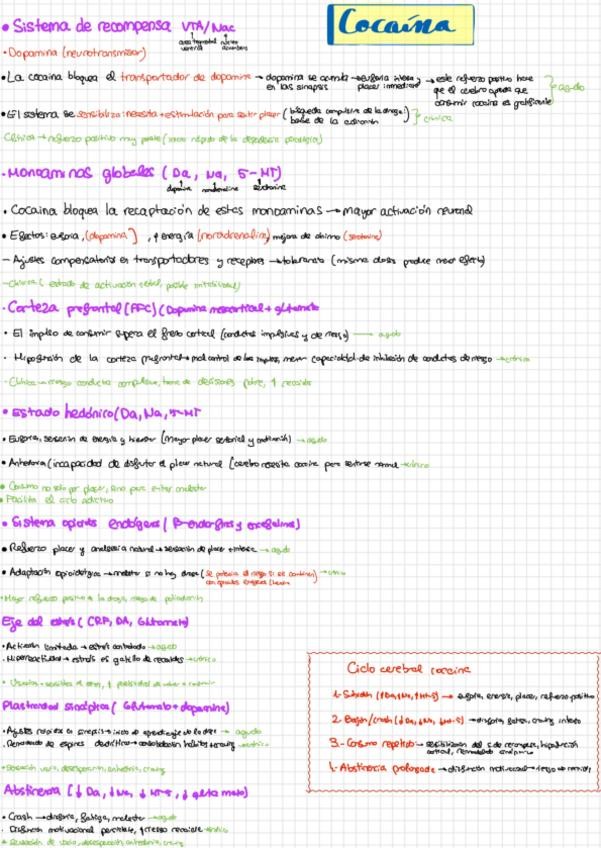 Cocaína
• Sistema de recompensa VTA/Nac
area tegmental ventral núcleo accumbens
• Dopamina (neurotransmisor)
• La cocaína bloquea el transportador de dopamina → dopamina se acumula en las sinapsis → euforia intensa y placer inmediato → este refuerzo positivo hace que el cerebro aprenda que consumir cocaína es gratificante } agudo
• El sistema se sensibiliza: necesita + estimulación para sentir placer (búsqueda compulsiva de la droga: base de la adicción) } crónica
Clínica → refuerzo positivo muy potente (inicio rápido de la dependencia psicológica)
• Monoaminas globales (Da, Na, 5-HT)
dopamina noradrenalina serotonina
• Cocaína bloquea la recaptación de estas monoaminas → mayor activación neuronal
• Efectos: euforia, (dopamina), ↑ energía (noradrenalina) mejora de ánimo (serotonina)
– Ajustes compensatorios en transportadores y receptores → tolerancia (misma dosis produce menor efecto)
- Clínica ( estado de activación , posible irritabilidad)
• Corteza prefrontal (PFC) (Dopamina mesocortical + glutamato
• El impulso de consumir supera el freno cortical (conductas impulsivas y de riesgo) → agudo
• Hipofunción de la corteza prefrontal → mal control de los impulsos, menor capacidad de inhibición de conductas de riesgo → crónico
- Clínica → riesgo conducta compulsiva, toma de decisiones pobre, ↑ recaídas
• Estado hedónico (Da, Na, 5-HT
• Euforia, sensación de energía y bienestar (mayor placer sensorial y ) → agudo
• Anhedonia (incapacidad de disfrutar el placer natural (cerebro necesita cocaína para sentirse normal → crónico
• Consumo no solo por placer, sino para evitar malestar
• Facilita el ciclo adictivo
• Sistema opioides endógenos (β-endorfinas y encefalinas)
• Refuerzo placer y analgesia natural → sensación de placer + intensa → agudo
• Adaptación opioidérgica → malestar si no hay droga (se potencia el riesgo si se combinan con opioides exógenos) → crónico
• Mayor refuerzo positivo de la droga, riesgo de policonsumo
Eje del estrés ( CRF, DA, Glutamato)
• Activación limitada → estrés controlado → agudo
• Hiperactividad → estrés es gatillo de recaídas → crónico
Plasticidad sináptica ( Glutamato + dopamina)
• Ajustes rápidos en sinapsis → inicio de aprendizaje de la droga → agudo
• Remodelado de espinas dendríticas → consolidación hábitos + craving → crónico
• Sensación vacío, desesperación, anhedonia, craving
Abstinencia (↓ Da, ↓ Na, ↓ 5-HT, ↓ glutamato)
• Crash → disforia, fatiga, malestar → agudo
• Disfunción motivacional persistente, ↑ riesgo recaída → crónico
• Sensación de vacío, desesperación, anhedonia, craving
Ciclo cerebral cocaína
1- Subidón (↑Da, ↑Na, ↑5-HT) → euforia, energía, placer, refuerzo positivo
2. Bajón/crash (↓Da, ↓Na, ↓5-HT) → disforia, fatiga, craving intenso
3.- Consumo repetido → sensibilización del s. de recompensa, hipofunción cortical, remodelado sináptico
4- Abstinencia prolongada → disfunción motivacional → riesgo de recaída